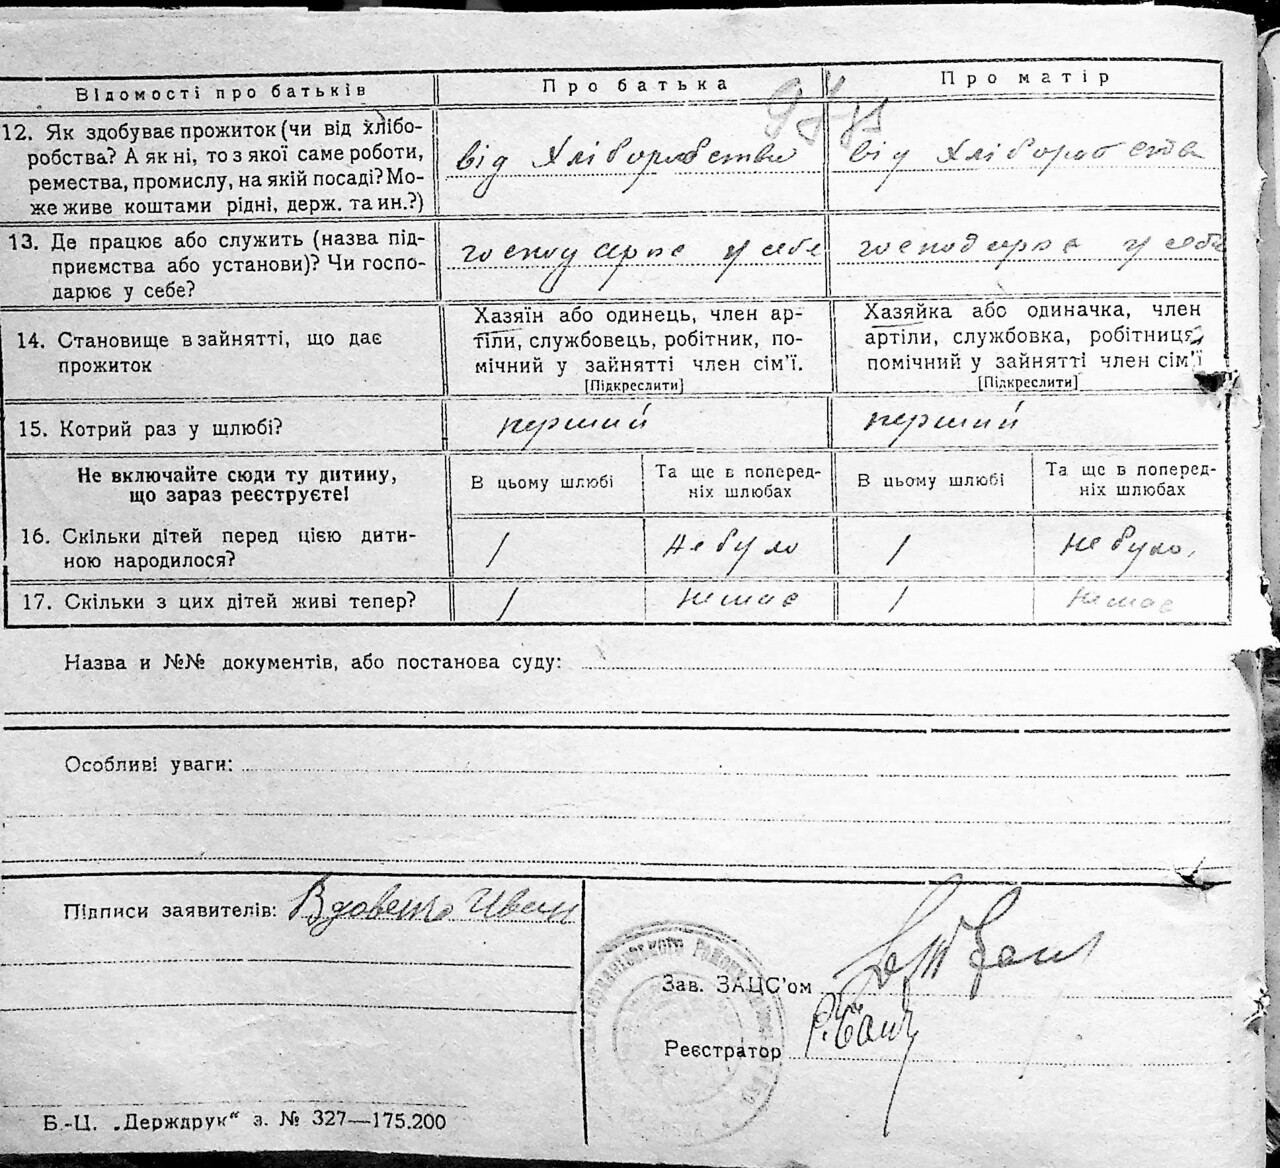 Відомості про батьків
Про батька
Про матір
12. Як здобуває прожиток (чи від хлібо-
робства? А як ні, то з якої саме роботи,
ремества, промислу, на якій посаді? Мо-
же живе коштами рідні, держ. та ин.?)
від хліборобства
від хліборобства
13. Де працює або служить (назва під-
приємства або установи)? Чи госпо-
дарює у себе?
господарює у себе
господарює у себе
14. Становище в зайнятті, що дає
прожиток
Хазяїн або одинець, член ар-
тіли, службовець, робітник, по-
мічний у зайнятті член сім'ї.
[Підкреслити]
Хазяйка або одиначка, член
артіли, службовка, робітниця,
помічний у зайнятті член сім'ї
[Підкреслити]
15. Котрий раз у шлюбі?
перший
перший
Не включайте сюди ту дитину,
що зараз реєструєте!
В цьому шлюбі
Та ще в поперед-
ніх шлюбах
В цьому шлюбі
Та ще в поперед-
ніх шлюбах
16. Скільки дітей перед цією дити-
ною народилося?
1
не було
1
не було.
17. Скільки з цих дітей живі тепер?
1
немає
1
немає
Назва и №№ документів, або постанова суду:
Особливі уваги:
Підписи заявителів: Вдовенко Иван
Зав. ЗАЦС'ом
Реєстратор
Б.-Ц. „Держдрук" з. № 327—175.200